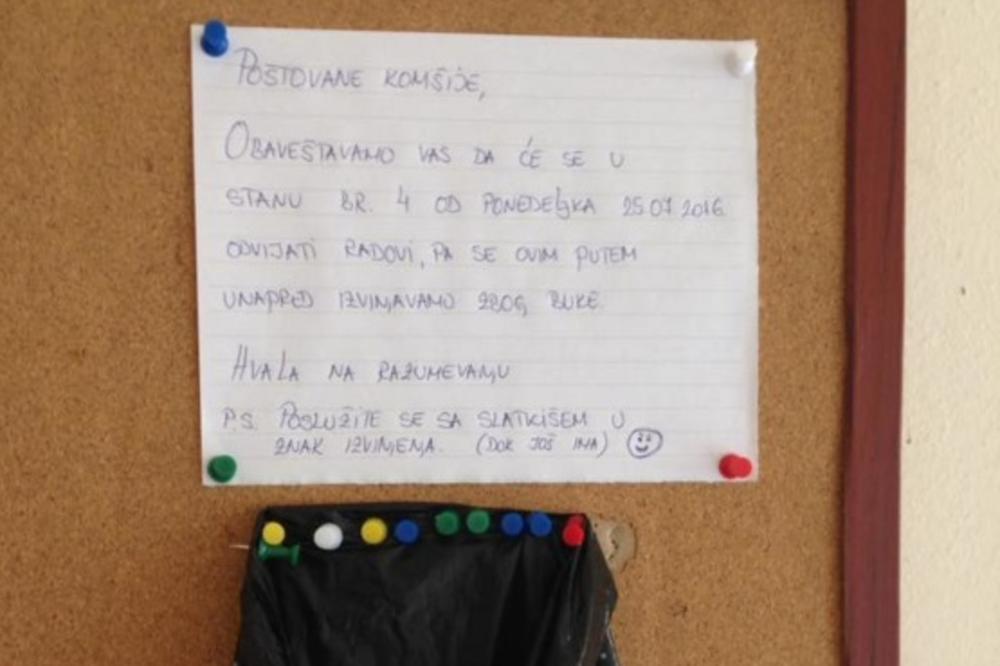 POŠTOVANE KOMŠIJE,
OBAVEŠTAVAMO VAS DA ĆE SE U
STANU BR. 4 OD PONEDELJKA 25.07.2016.
ODVIJATI RADOVI, PA SE OVIM PUTEM
UNAPRED IZVINJAVAMO ZBOG BUKE.
HVALA NA RAZUMEVANJU
P.S. POSLUŽITE SE SA SLATKIŠEM U
ZNAK IZVINJENJA. (DOK JOŠ IMA)